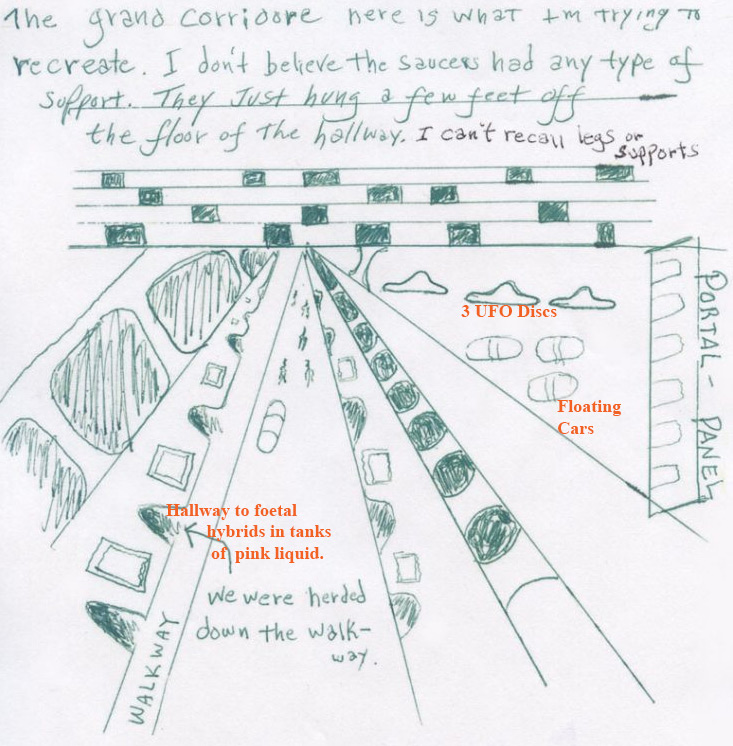 The grand corridore here is what I'm trying to
recreate. I don't believe the saucers had any type of
support. They Just hung a few feet off
the floor of The hallway. I can't recall legs or
supports
3 UFO Discs
Floating
Cars
PORTAL - PANEL
Hallway to foetal
hybrids in tanks
of pink liquid.
We were herded
down the walk-
way.
WALKWAY